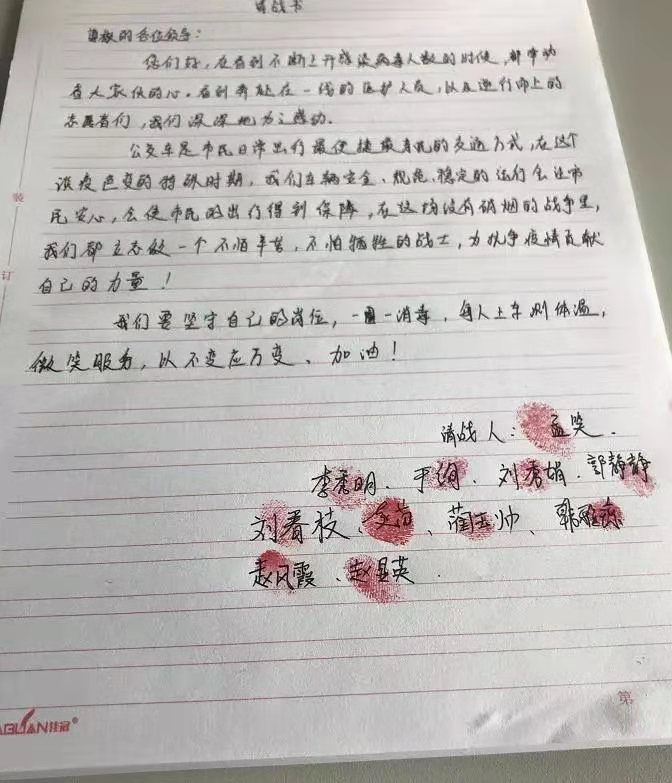 请战书
尊敬的各位领导：
您们好，在看到不断上升感染病毒人数的时候，都牵动
着大家伙的心。看到奔赴在一线的医护人员，以及逆行而上的
志愿者们，我们深深地为之感动.
公交车是市民日常出行最便捷最亲民的交通方式，在这个
谈疫色变的特殊时期，我们车辆安全、规范、稳定的运行会让市
民安心，会使市民的出行得到保障，在这场没有硝烟的战争里，
我们都立志做一个不怕辛苦，不怕牺牲的战士，为抗争疫情贡献
自己的力量！
我们要坚守自己的岗位，一圈一消毒，每人上车测体温，
微笑服务，以不变应万变、加油！
请战人：孟笑.
李秀明、于绚、刘秀娟、郭静静
刘春枝、、蔺玉帅、韩雅
赵风霞、赵显英.
装
订
第
GUAN佳冠®